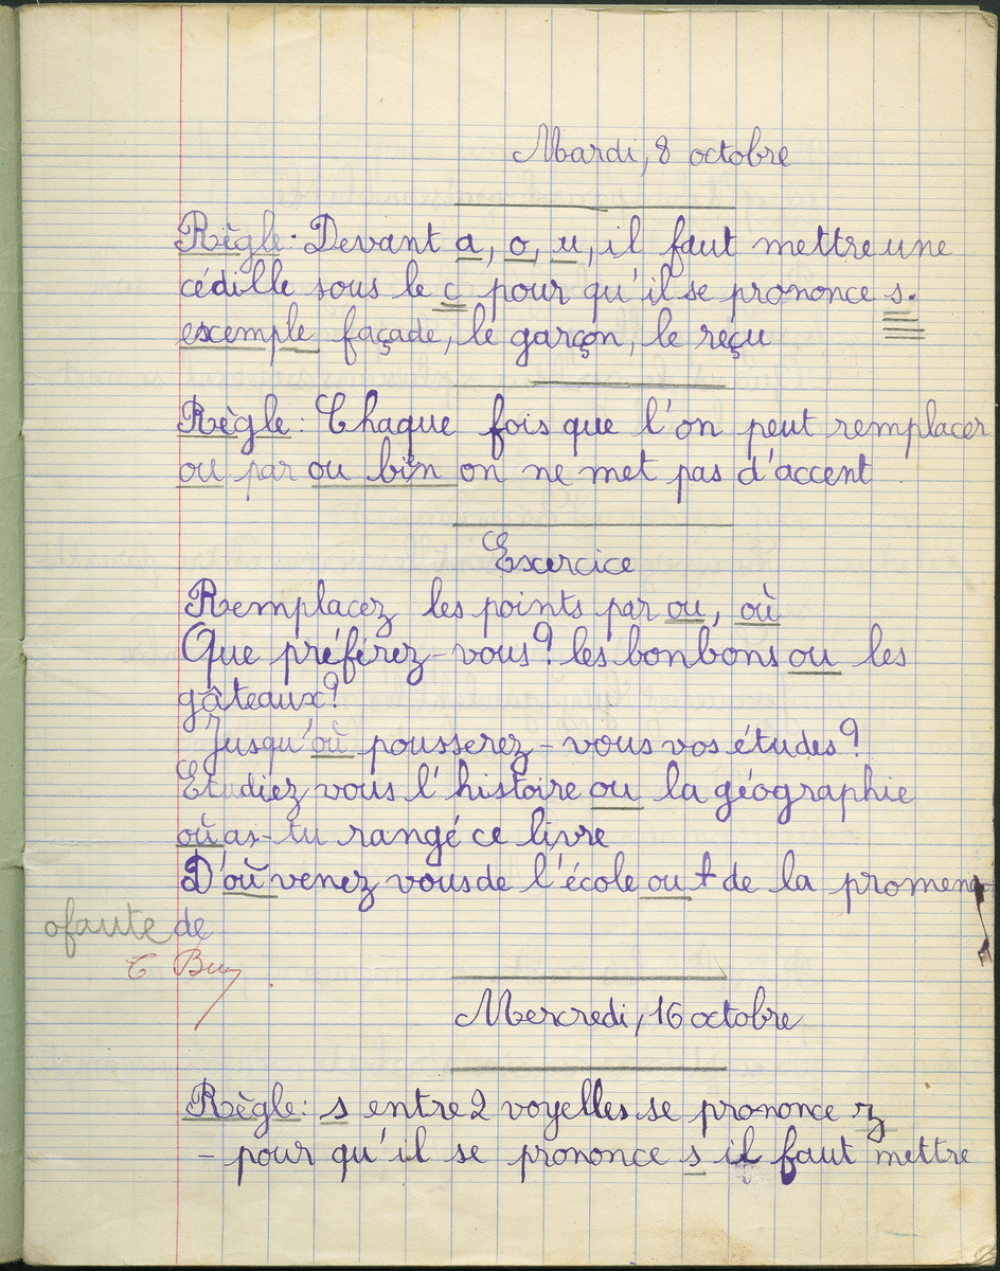 Mardi, 8 octobre
Règle. Devant a, o, u, il faut mettre une
cédille sous le ç pour qu'il se prononce s.
exemple façade, le garçon, le reçu
Règle : Chaque fois que l'on peut remplacer
ou par ou bien on ne met pas d'accent
Exercice
Remplacez les points par ou, où
Que préférez-vous? les bonbons ou les
gâteaux?
Jusqu'où pousserez-vous vos études?
Etudiez vous l'histoire ou la géographie
où as-tu rangé ce livre
D'où venez vous de l'école ou de la promena
de
0 faute
B
Mercredi, 16 octobre
Règle : s entre 2 voyelles se prononce z
- pour qu'il se prononce s il faut mettre